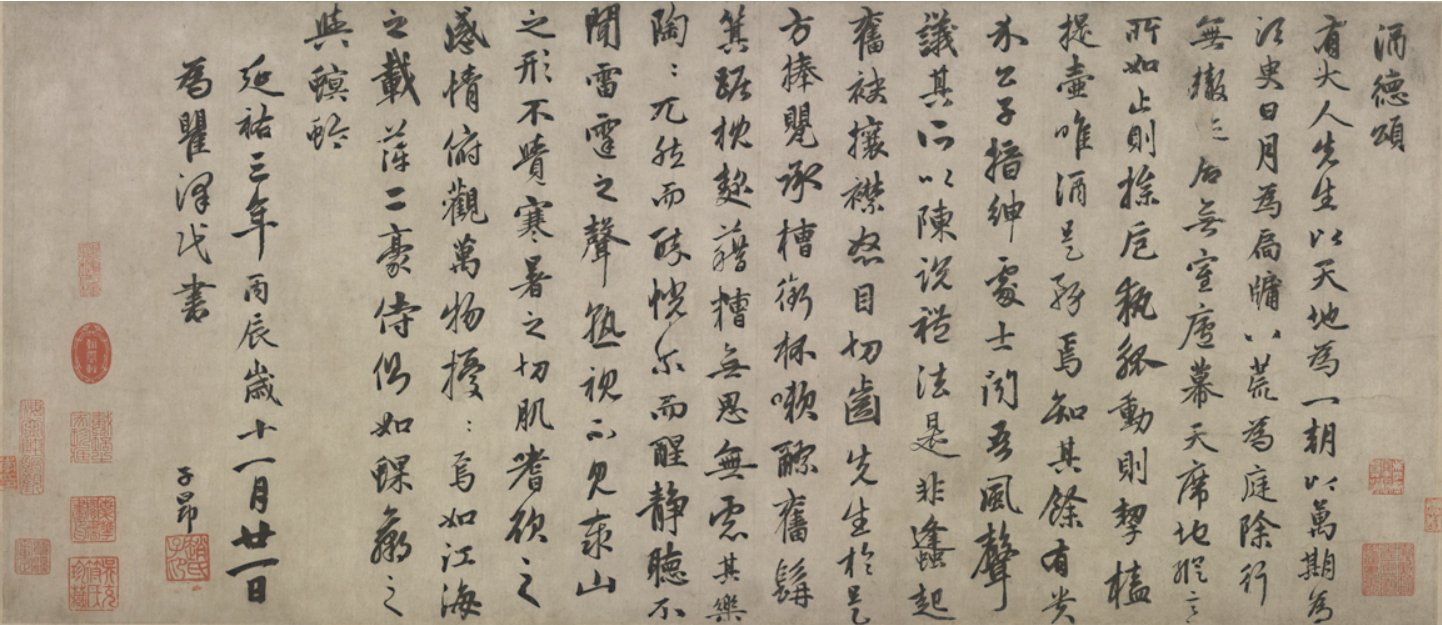 酒德頌
有大人先生以天地為一朝以萬期為
須臾日月為扃牖八荒為庭除行
無轍迹居無室廬幕天席地縱意
所如止則操卮執觚動則挈榼
提壺唯酒是務焉知其餘有貴
介公子搢紳處士聞吾風聲
議其所以陳說禮法是非蠭起
奮袂攘襟怒目切齒先生於是
方捧甖承槽銜杯漱醪奮髯
箕踞枕麴藉糟無思無慮其樂
陶:兀然而醉恍尔而醒靜聽不
聞雷霆之聲熟視不見泰山
之形不覺寒暑之切肌嗜欲之
感情俯觀萬物擾:焉如江海
之載萍二豪侍側如蜾蠃之
與螟蛉
延祐三年丙辰歲十一月廿一日
為瞿澤民書
子昂
趙氏子昂